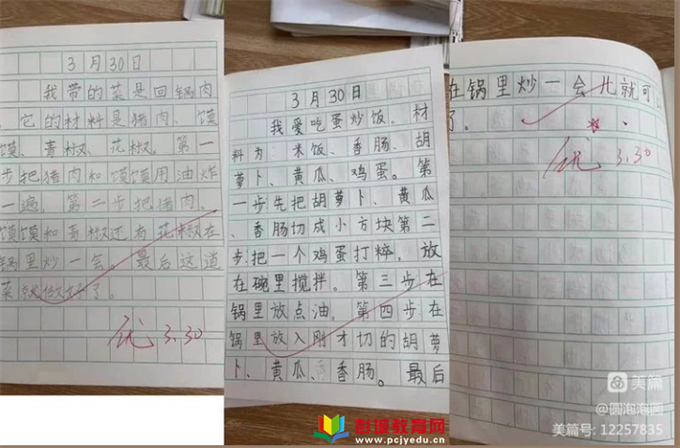 3月30日
我带的菜是回锅肉
。它的材料是猪肉、馍
馍、青椒、花椒。第一
步把猪肉和馍馍用油炸
一遍 第二步把猪肉、
馍馍和青椒还有花椒在
锅里炒一会。最后这道
菜就做好了。
优 3.30
3月30日
我爱吃蛋炒饭。材
料为 米饭、香肠、胡
萝卜、黄瓜、鸡蛋。第
一步先把胡萝卜、黄瓜
、香肠切成小方块第二
步把一个鸡蛋打粹,放
在碗里搅拌。第三步在
锅里放点油,第四步在
锅里放入刚才切的胡萝
卜、黄瓜、香肠。最后
在锅里炒一会儿就可
了。
优 3.30
彭浦教育网
www.pcjyedu.cn
美篇
@圆泡泡圆
美篇号:12257835